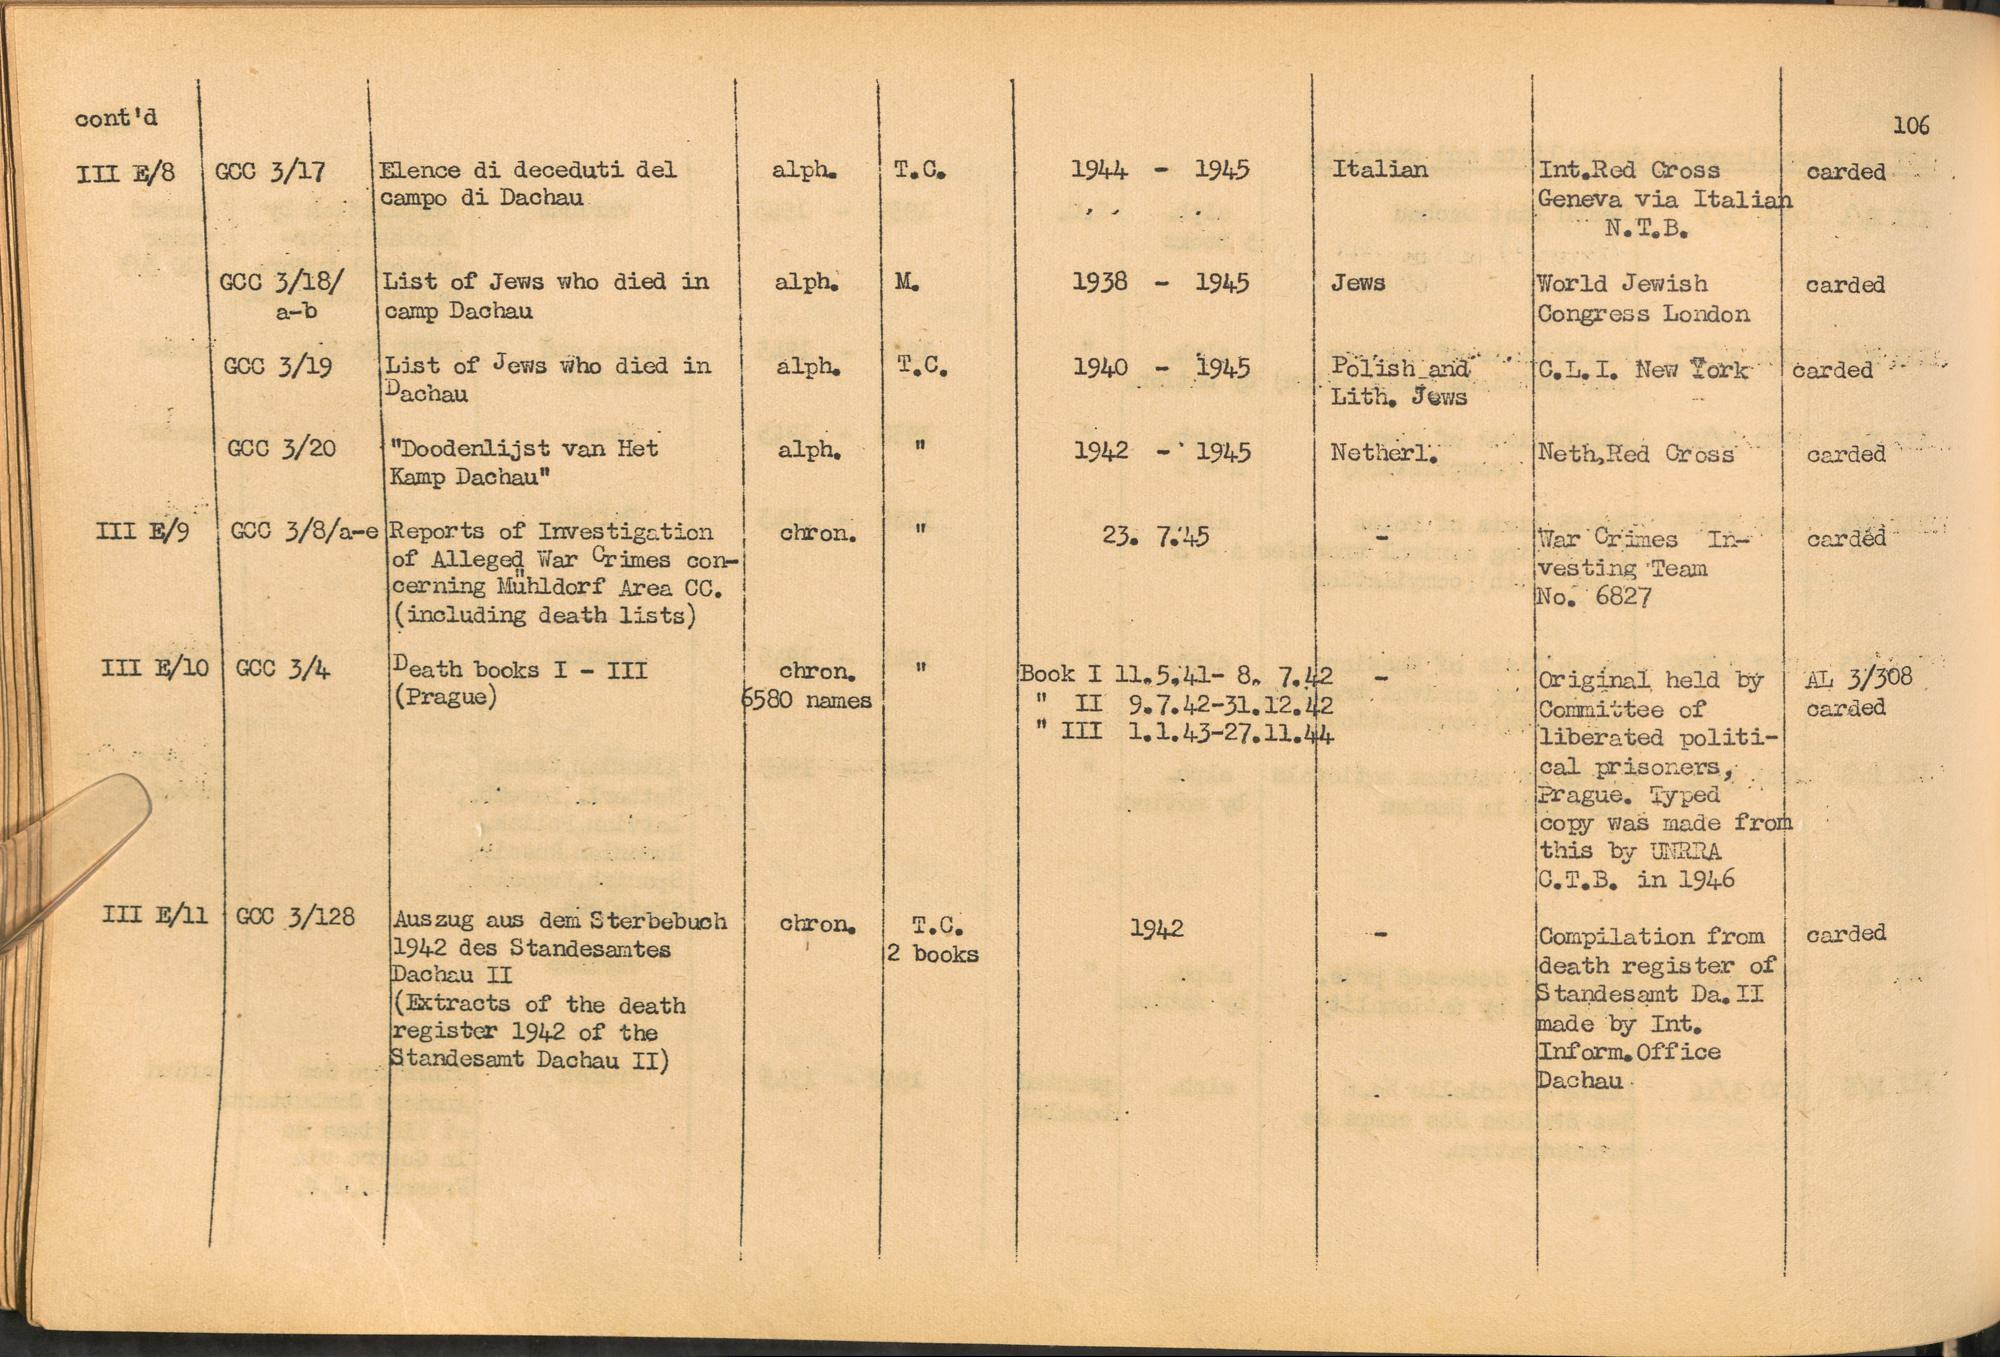 cont'd
106
III E/8 GCC 3/17 Elence di deceduti del alph. T.C. 1944 - 1945 Italian Int.Red Cross carded
campo di Dachau Geneva via Italian
N.T.B.
GCC 3/18/ List of Jews who died in alph. M. 1938 - 1945 Jews World Jewish carded
a-b camp Dachau Congress London
GCC 3/19 List of Jews who died in alph. T.C. 1940 - 1945 Polish and C.L.I. New York carded
Dachau Lith. Jews
GCC 3/20 "Doodenlijst van Het alph. " 1942 - 1945 Netherl. Neth,Red Cross carded
Kamp Dachau"
III E/9 GCC 3/8/a-e Reports of Investigation chron. " 23. 7.45 - War Crimes In- carded
of Alleged War Crimes con- vesting Team
cerning Mühldorf Area CC. No. 6827
(including death lists)
III E/10 GCC 3/4 Death books I - III chron. " Book I 11.5.41- 8. 7.42 - Original held by AL 3/308
(Prague) 6580 names " II 9.7.42-31.12.42 Committee of carded
" III 1.1.43-27.11.44 liberated politi-
cal prisoners,
Prague. Typed
copy was made from
this by UNRRA
C.T.B. in 1946
III E/11 GCC 3/128 Auszug aus dem Sterbebuch chron. T.C. 1942 - Compilation from carded
1942 des Standesamtes 2 books death register of
Dachau II Standesamt Da.II
(Extracts of the death made by Int.
register 1942 of the Inform.Office
Standesamt Dachau II) Dachau